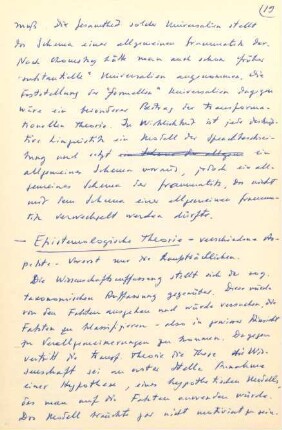 (19)
muß. Die Gesamtheit solcher Universalien stellt
das Schema einer allgemeinen Grammatik dar.
Nach Chomsky hätte man auch schon früher
"substantielle" Universalien angenommen, die
Feststellung der "formellen" Universalien dagegen
wäre ein besonderer Beitrag der transforma-
tionellen Theorie. In Wirklichkeit ist jede
Linguistik ein Modell der Sprachbeschrei-
bung und setzt ein
allgemeines Schema voraus, jedoch ein all-
gemeines Schema der Grammatik, das nicht
mit dem Schema einer allgemeinen Gramma-
tik verwechselt werden dürfte.
— Epistemologische Theorie – verschiedene As-
pekte – vorerst nur die hauptsächlichen.
Die Wissenschaftsauffassung stellt sich der sog.
taxonomischen Auffassung gegenüber. Diese würde
von den Fakten ausgehen und würde versuchen, die
Fakten zu klassifizieren – also in gewisser Hinsicht
zu Verallgemeinerungen zu kommen. Dagegen
vertritt die transf. Theorie die These die Wis-
senschaft sei an erster Stelle Annahme
einer Hypothese, eines hypothetischen Modells,
das man auf die Fakten anwenden würde.
Das Modell brauchte gar nicht motiviert zu sein.